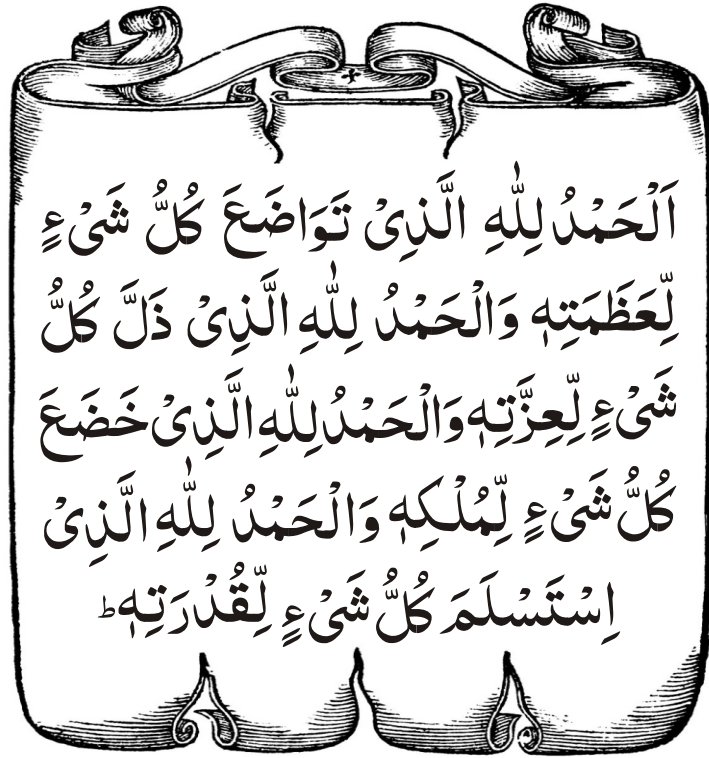 اَلْحَمْدُ لِلّٰهِ الَّذِیْ تَوَاضَعَ كُلُّ شَیْءٍ
لِّعَظَمَتِهٖ وَالْحَمْدُ لِلّٰهِ الَّذِیْ ذَلَّ كُلُّ
شَیْءٍ لِّعِزَّتِهٖ وَالْحَمْدُ لِلّٰهِ الَّذِیْ خَضَعَ
كُلُّ شَیْءٍ لِّمُلْكِهٖ وَالْحَمْدُ لِلّٰهِ الَّذِیْ
اِسْتَسْلَمَ كُلُّ شَیْءٍ لِّقُدْرَتِهٖ ؕ